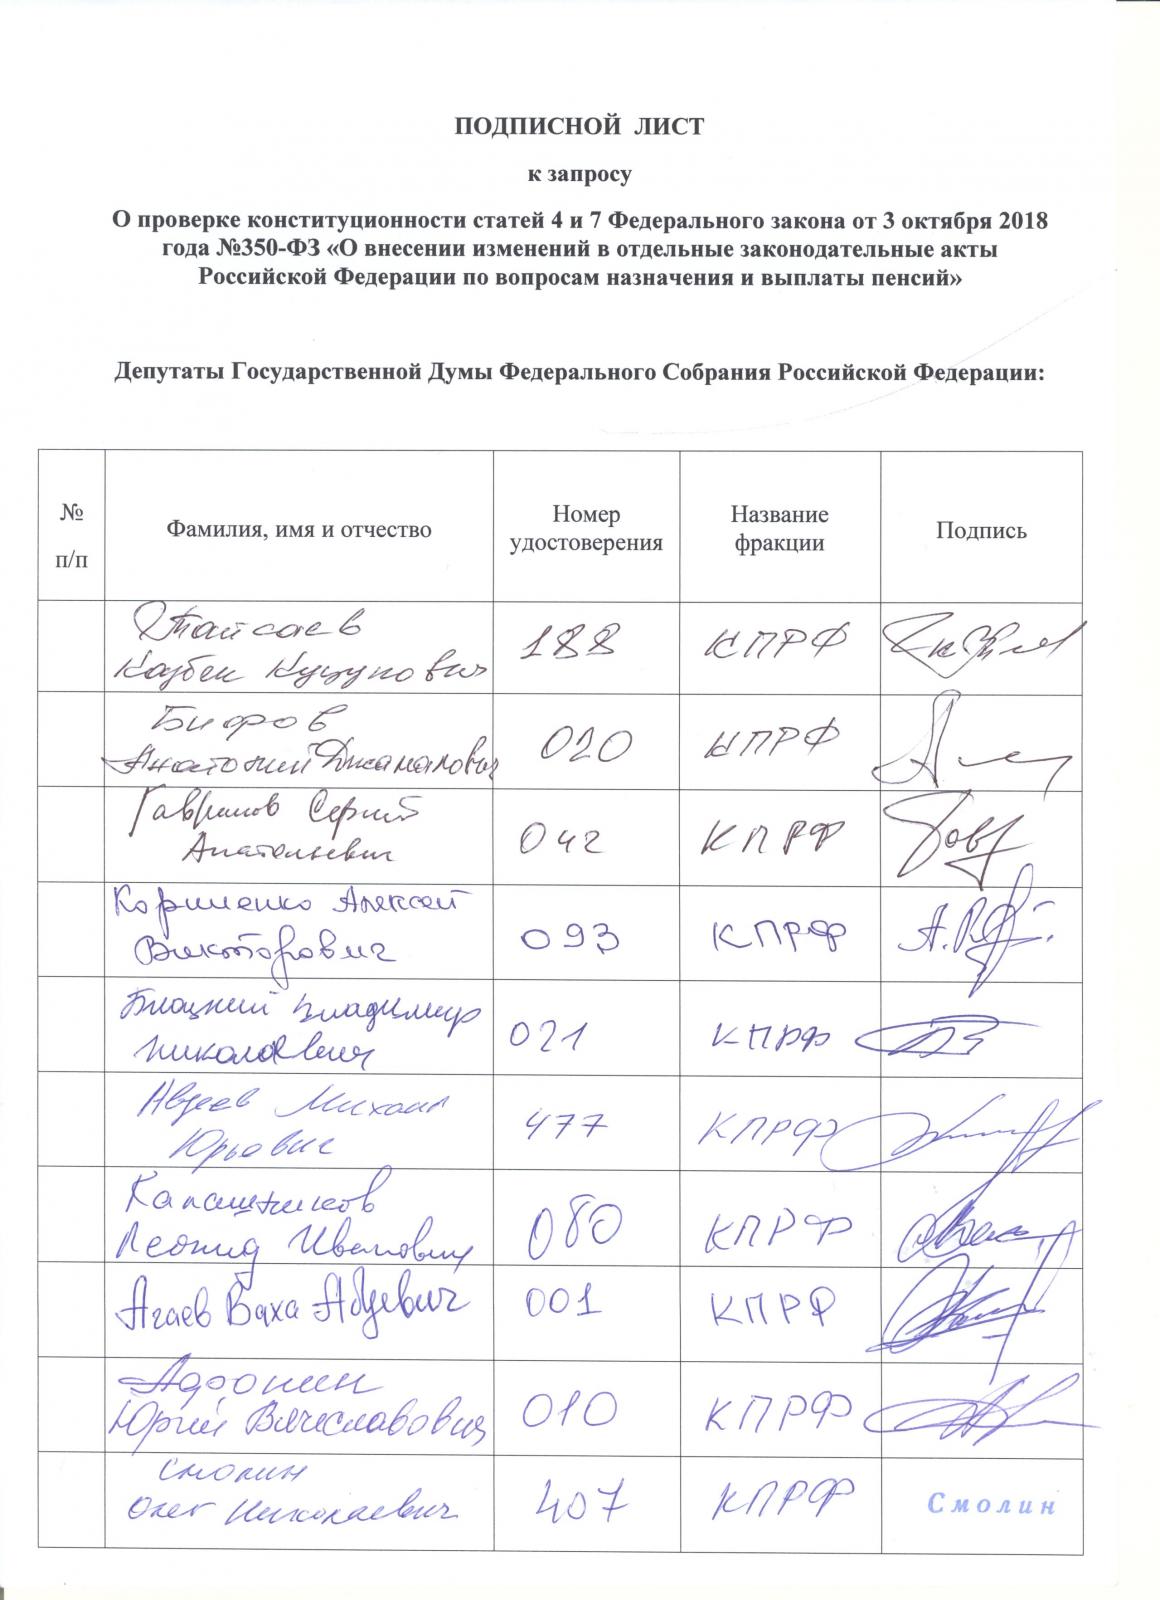 ПОДПИСНОЙ ЛИСТ
к запросу
О проверке конституционности статей 4 и 7 Федерального закона от 3 октября 2018
года №350-ФЗ «О внесении изменений в отдельные законодательные акты
Российской Федерации по вопросам назначения и выплаты пенсий»
Депутаты Государственной Думы Федерального Собрания Российской Федерации:
№
п/п
Фамилия, имя и отчество
Номер
удостоверения
Название
фракции
Подпись
Тайсаев
Казбек Куцукович
188
КПРФ
Бифов
Анатолий Джамалович
020
КПРФ
Гаврилов Сергей
Анатольевич
042
КПРФ
Корниенко Алексей
Викторович
093
КПРФ
Блоцкий Владимир
Николаевич
021
КПРФ
Авдеев Михаил
Юрьевич
477
КПРФ
Калашников
Леонид Иванович
080
КПРФ
Агаев Ваха Абуевич
001
КПРФ
Афонин
Юрий Вячеславович
010
КПРФ
Смолин
Олег Николаевич
407
КПРФ
Смолин